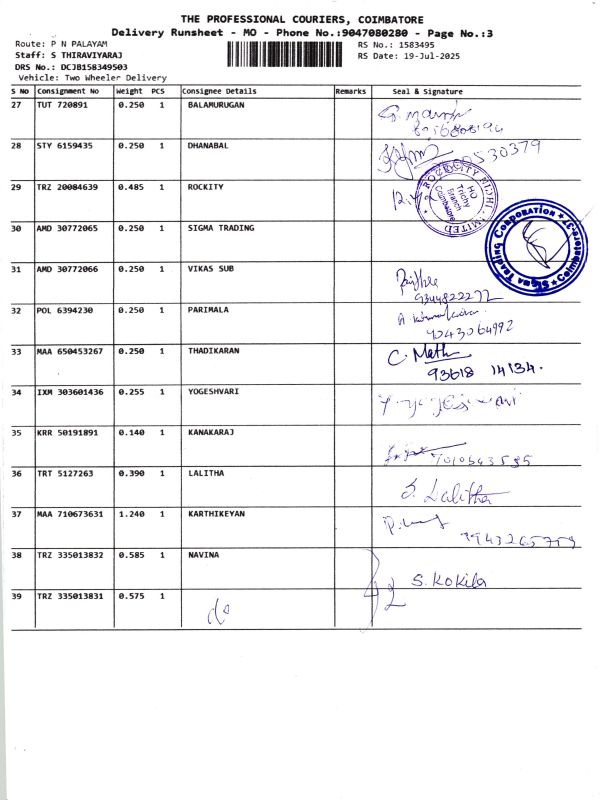 THE PROFESSIONAL COURIERS, COIMBATORE
Delivery Runsheet - MO - Phone No.:9047080280 - Page No.:3
Route: P N PALAYAM
Staff: S THIRAVIYARAJ
DRS No.: DCJB158349503
Vehicle: Two Wheeler Delivery
RS No.: 1583495
RS Date: 19-Jul-2025
S No Consignment No Weight PCS Consignee Details Remarks Seal & Signature
27 TUT 720891 0.250 1 BALAMURUGAN
28 STY 6159435 0.250 1 DHANABAL
29 TRZ 20084639 0.485 1 ROCKITY
ROCKCITY NIDHI LIMITED
HO Trichy Branch Coimbatore
30 AMD 30772065 0.250 1 SIGMA TRADING
Sigma Trading Corporation Coimbatore-37
31 AMD 30772066 0.250 1 VIKAS SUB
9344822272
32 POL 6394230 0.250 1 PARIMALA
9043064992
33 MAA 650453267 0.250 1 THADIKARAN
C. Math
93618 14134.
34 IXM 303601436 0.255 1 YOGESHVARI
35 KRR 50191891 0.140 1 KANAKARAJ
7010543535
36 TRT 5127263 0.390 1 LALITHA
S. Lalitha
37 MAA 710673631 1.240 1 KARTHIKEYAN
9943265759
38 TRZ 335013832 0.585 1 NAVINA
S. Kokila
39 TRZ 335013831 0.575 1
do